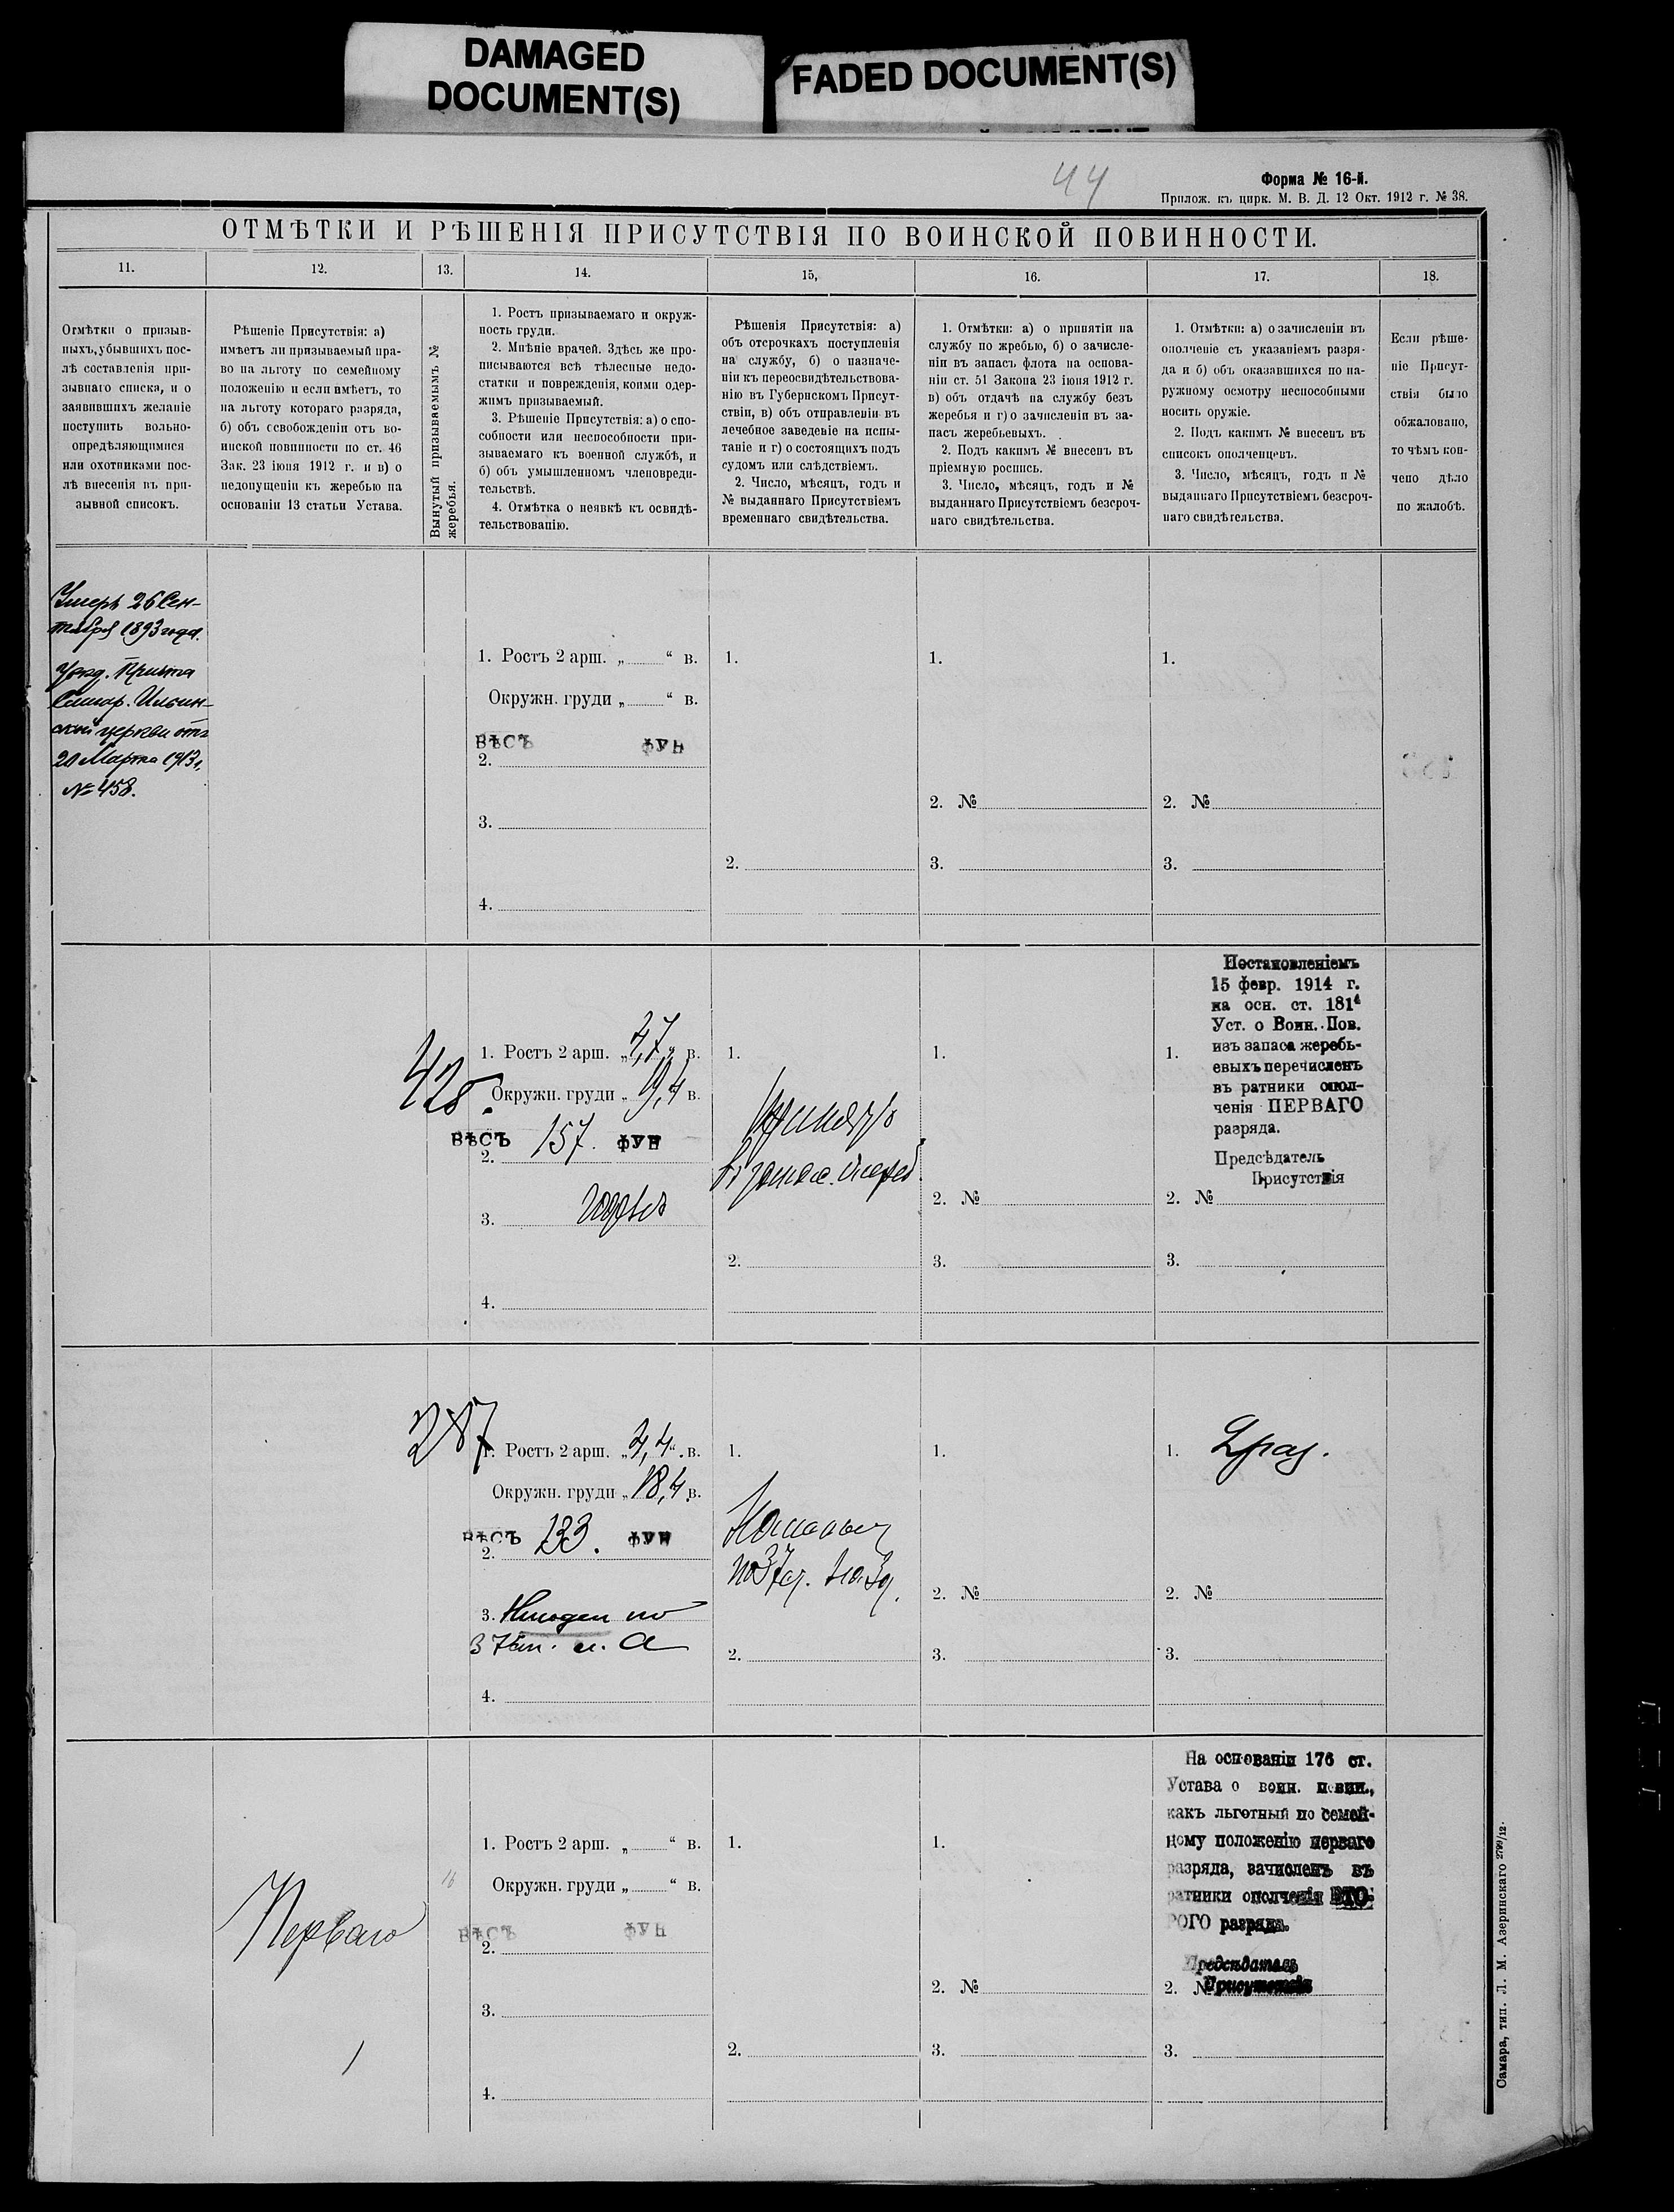 DAMAGED
DOCUMENT(S)
FADED DOCUMENT(S)
44
Форма № 16-й.
Прилож. къ цирк. М. В. Д. 12 Окт. 1912 г. № 38.
ОТМѢТКИ И РѢШЕНІЯ ПРИСУТСТВІЯ ПО ВОИНСКОЙ ПОВИННОСТИ.
11.
12.
13.
14.
15,
16.
17.
18.
Отмѣтки о призыв-
ныхъ, убывшихъ пос-
лѣ составленія при-
зывнаго списка, и о
заявившихъ желаніе
поступить вольно-
опредѣляющимися
или охотниками пос-
лѣ внесенія въ при-
зывной списокъ.
Рѣшеніе Присутствія: а)
имѣетъ ли призываемый пра-
во на льготу по семейному
положенію и если имѣетъ, то
на льготу котораго разряда,
б) объ освобожденіи отъ во-
инской повинности по ст. 46
Зак. 23 іюня 1912 г. и в) о
недопущеніи къ жеребью на
основаніи 13 статьи Устава.
Вынутый призываемымъ №
жеребья.
1. Ростъ призываемаго и окруж-
ность груди.
2. Мнѣніе врачей. Здѣсь же про-
писываются всѣ тѣлесные недо-
статки и поврежденія, коими одер-
жимъ призываемый.
3. Рѣшеніе Присутствія: а) о спо-
собности или неспособности при-
зываемаго къ военной службѣ, и
б) объ умышленномъ членовреди-
тельствѣ.
4. Отмѣтка о неявкѣ къ освидѣ-
тельствованію.
Рѣшенія Присутствія: а)
объ отсрочкахъ поступленія
на службу, б) о назначе-
ніи къ переосвидѣтельствова-
нію въ Губернскомъ Присут-
ствіи, в) объ отправленіи въ
лечебное заведеніе на испы-
таніе и г) о состоящихъ подъ
судомъ или слѣдствіемъ.
2. Число, мѣсяцъ, годъ и
№ выданнаго Присутствіемъ
временнаго свидѣтельства.
1. Отмѣтки: а) о принятіи на
службу по жребью, б) о зачисле-
ніи въ запасъ флота на основа-
ніи ст. 51 Закона 23 іюня 1912 г.
в) объ отдачѣ на службу безъ
жеребья и г) о зачисленіи въ за-
пасъ жеребьевыхъ.
2. Подъ какимъ № внесенъ въ
пріемную роспись.
3. Число, мѣсяцъ, годъ и №
выданнаго Присутствіемъ безсроч-
наго свидѣтельства.
1. Отмѣтки: а) о зачисленіи въ
ополченіе съ указаніемъ разря-
да и б) объ оказавшихся по на-
ружному осмотру неспособными
носить оружіе.
2. Подъ какимъ № внесенъ въ
списокъ ополченцевъ.
3. Число, мѣсяцъ, годъ и №
выданнаго Присутствіемъ безсроч-
наго свидѣтельства.
Если рѣше-
ніе Присут-
ствія было
обжаловано,
то чѣмъ кон-
чено дѣло
по жалобѣ.
Умеръ 26 Сен-
тября 1893 года.
Увѣд. Причта
Самар. Ильин-
ской церкви отъ
20 Марта 1913 г.
№ 458.
1. Ростъ 2 арш. „ “ в.
Окружн. груди „ “ в.
ВѢСЪ ФУН
2.
3.
4.
1.
2.
1.
2. №
3.
1.
2. №
3.
428.
1. Ростъ 2 арш. „4,7„ в.
Окружн. груди „ 19,4 в.
ВѢСЪ 157. ФУН
2.
3. Годенъ
4.
1.
въ запас. жереб.
2.
1.
2. №
3.
1.
Постановленіемъ
15 февр. 1914 г.
на осн. ст. 181⁴
Уст. о Воин. Пов.
изъ запаса жеребь-
евыхъ перечисленъ
въ ратники опол-
ченія ПЕРВАГО
разряда.
Предсѣдатель
Присутствія
2. №
3.
287
1. Ростъ 2 арш. „4,4“ в.
Окружн. груди „18,4 в.
ВѢСЪ 133. ФУН
2.
3. Негоден по
37 ст. л. А
4.
1.
2.
1.
2. №
3.
1. 2 раз.
2. №
3.
Перваго
1. Ростъ 2 арш. „ “ в.
Окружн. груди „ “ в.
ВѢСЪ ФУН
2.
3.
4.
1.
2.
1.
2. №
3.
На основаніи 176 ст.
Устава о воин. повин.,
какъ льготный по семей-
ному положенію перваго
разряда, зачисленъ въ
ратники ополченія ВТО-
РОГО разряда.
Предсѣдатель
Присутствія
2. №
3.
Самара, тип. Л. М. Азеринскаго 2799/12.